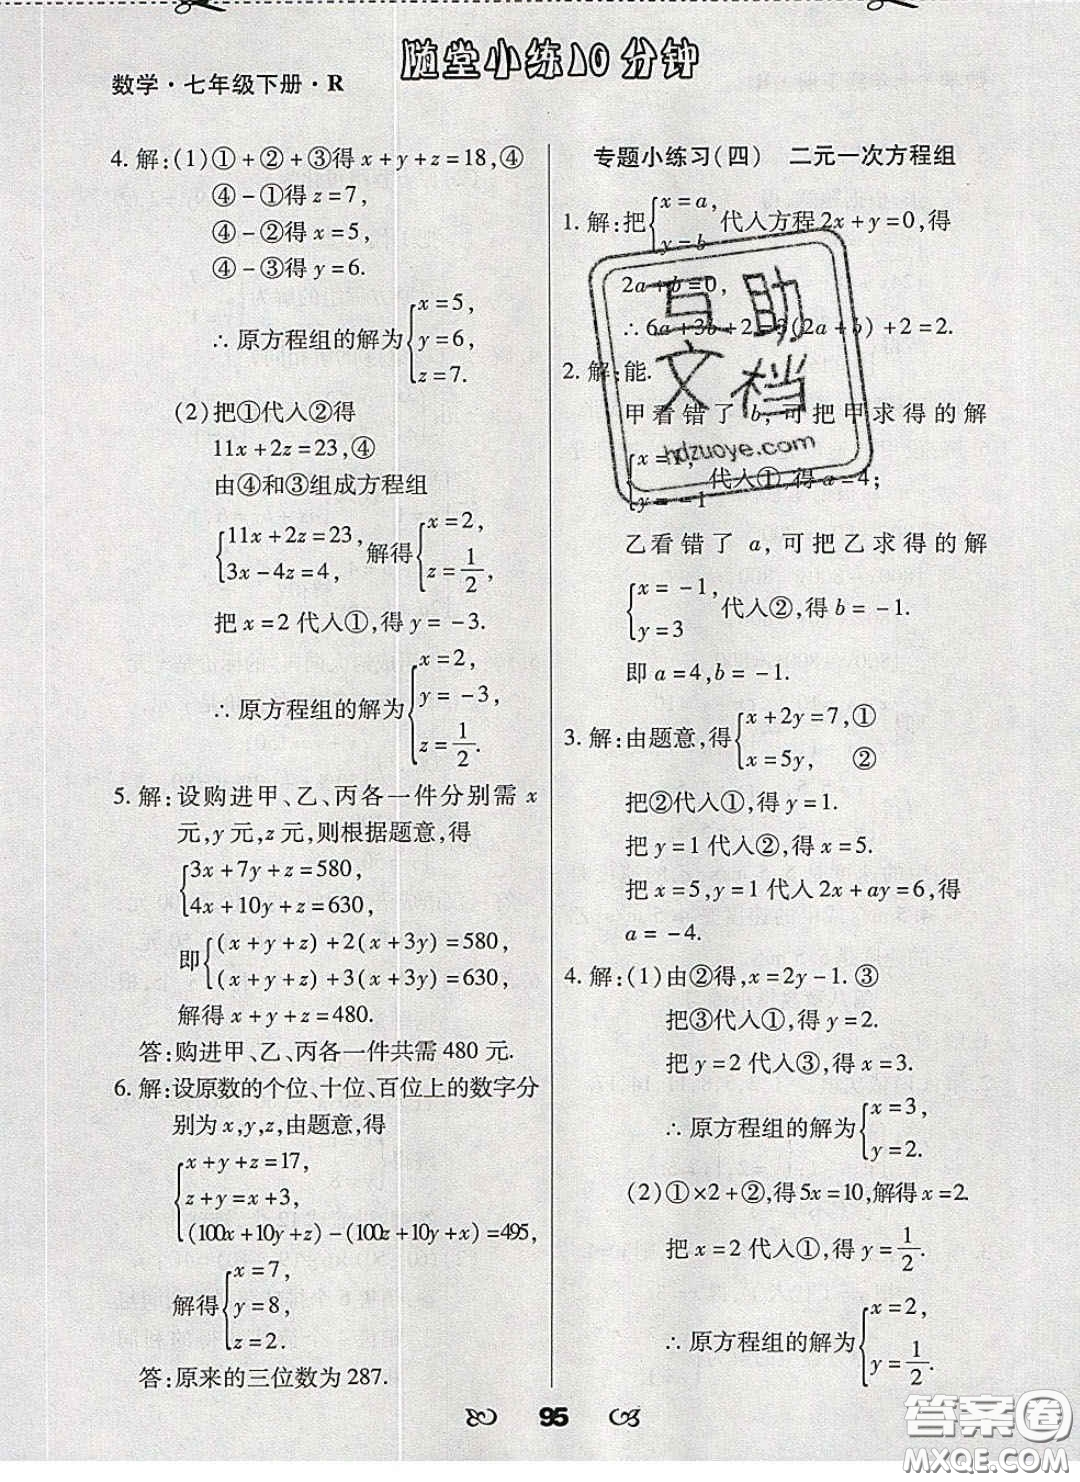 随堂小练10分钟
数学·七年级下册·R
4. 解:(1)①+②+③得x+y+z=18,④
④-①得z=7,
④-②得x=5,
④-③得y=6.
∴原方程组的解为{x=5,
y=6,
z=7.
(2)把①代入②得
11x+2z=23,④
由④和③组成方程组
{11x+2z=23,
3x-4z=4, 解得{x=2,
z=1/2,
把x=2代入①,得y=-3.
∴原方程组的解为{x=2,
y=-3,
z=1/2.
5. 解:设购进甲、乙、丙各一件分别需x
元,y元,z元,则根据题意,得
{3x+7y+z=580,
4x+10y+z=630,
即{(x+y+z)+2(x+3y)=580,
(x+y+z)+3(x+3y)=630,
解得x+y+z=480.
答:购进甲、乙、丙各一件共需480元.
6. 解:设原数的个位、十位、百位上的数字分
别为x,y,z,由题意,得
{x+y+z=17,
z+y=x+3,
(100x+10y+z)-(100z+10y+x)=495,
解得{x=7,
y=8,
z=2.
答:原来的三位数为287.
专题小练习(四) 二元一次方程组
1. 解:把{x=a,
y=b 代入方程2x+y=0,得
2a+b=0,
∴6a+3b+2=3(2a+b)+2=2.
2. 解:能.
甲看错了b,可把甲求得的解
{x=1,
y=-1 代入①,得a=4;
乙看错了a,可把乙求得的解
{x=-1,
y=3 代入②,得b=-1.
即a=4,b=-1.
3. 解:由题意,得{x+2y=7,①
x=5y, ②
把②代入①,得y=1.
把y=1代入②,得x=5.
把x=5,y=1代入2x+ay=6,得
a=-4.
4. 解:(1)由②得,x=2y-1.③
把③代入①,得y=2.
把y=2代入③,得x=3.
∴原方程组的解为{x=3,
y=2.
(2)①×2+②,得5x=10,解得x=2.
把x=2代入①,得y=1/2.
∴原方程组的解为{x=2,
y=1/2.
95
互助
文档
hdzuoye.com
答案圈
MXQE.COM